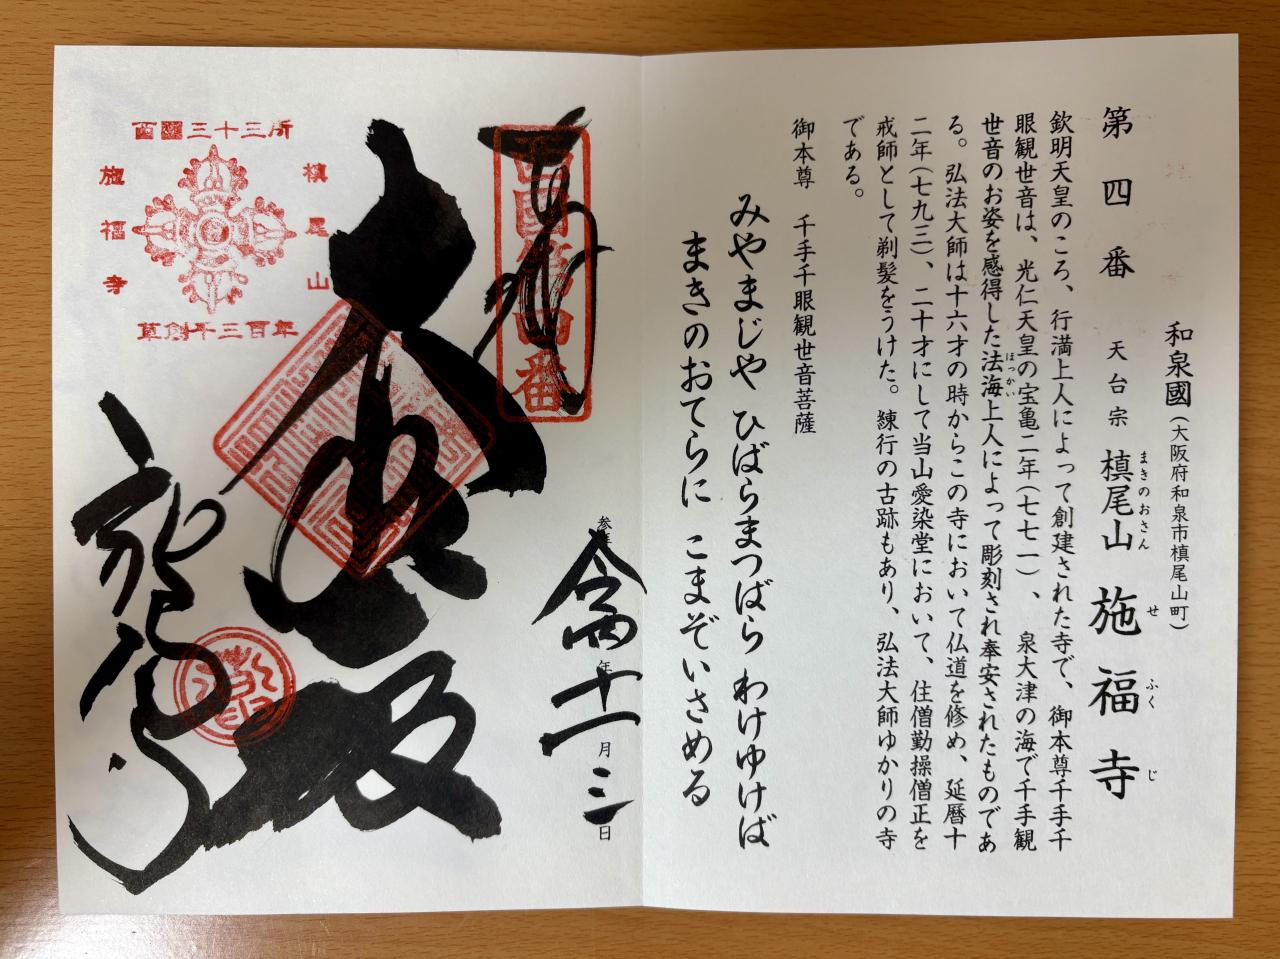 和泉國(大阪府和泉市槙尾山町)
第四番 天台宗 槙尾山 施福寺
まきのおさん せ ふく じ
欽明天皇のころ、行満上人によって創建された寺で、御本尊千手千
眼観世音は、光仁天皇の宝亀二年(七七一)、泉大津の海で千手観
世音のお姿を感得した法海上人によって彫刻され奉安されたものであ
ほっかい
る。弘法大師は十六才の時からこの寺において仏道を修め、延暦十
二年(七九三)、二十才にして当山愛染堂において、住僧勤操僧正を
戒師として剃髪をうけた。練行の古跡もあり、弘法大師ゆかりの寺
である。
御本尊 千手千眼観世音菩薩
みやまじや ひばらまつばら わけゆけば
まきのおてらに こまぞいさめる
参拝
令四年十一月三日
西國第四番
西國三十三所
槙尾山
施福寺
草創千三百年